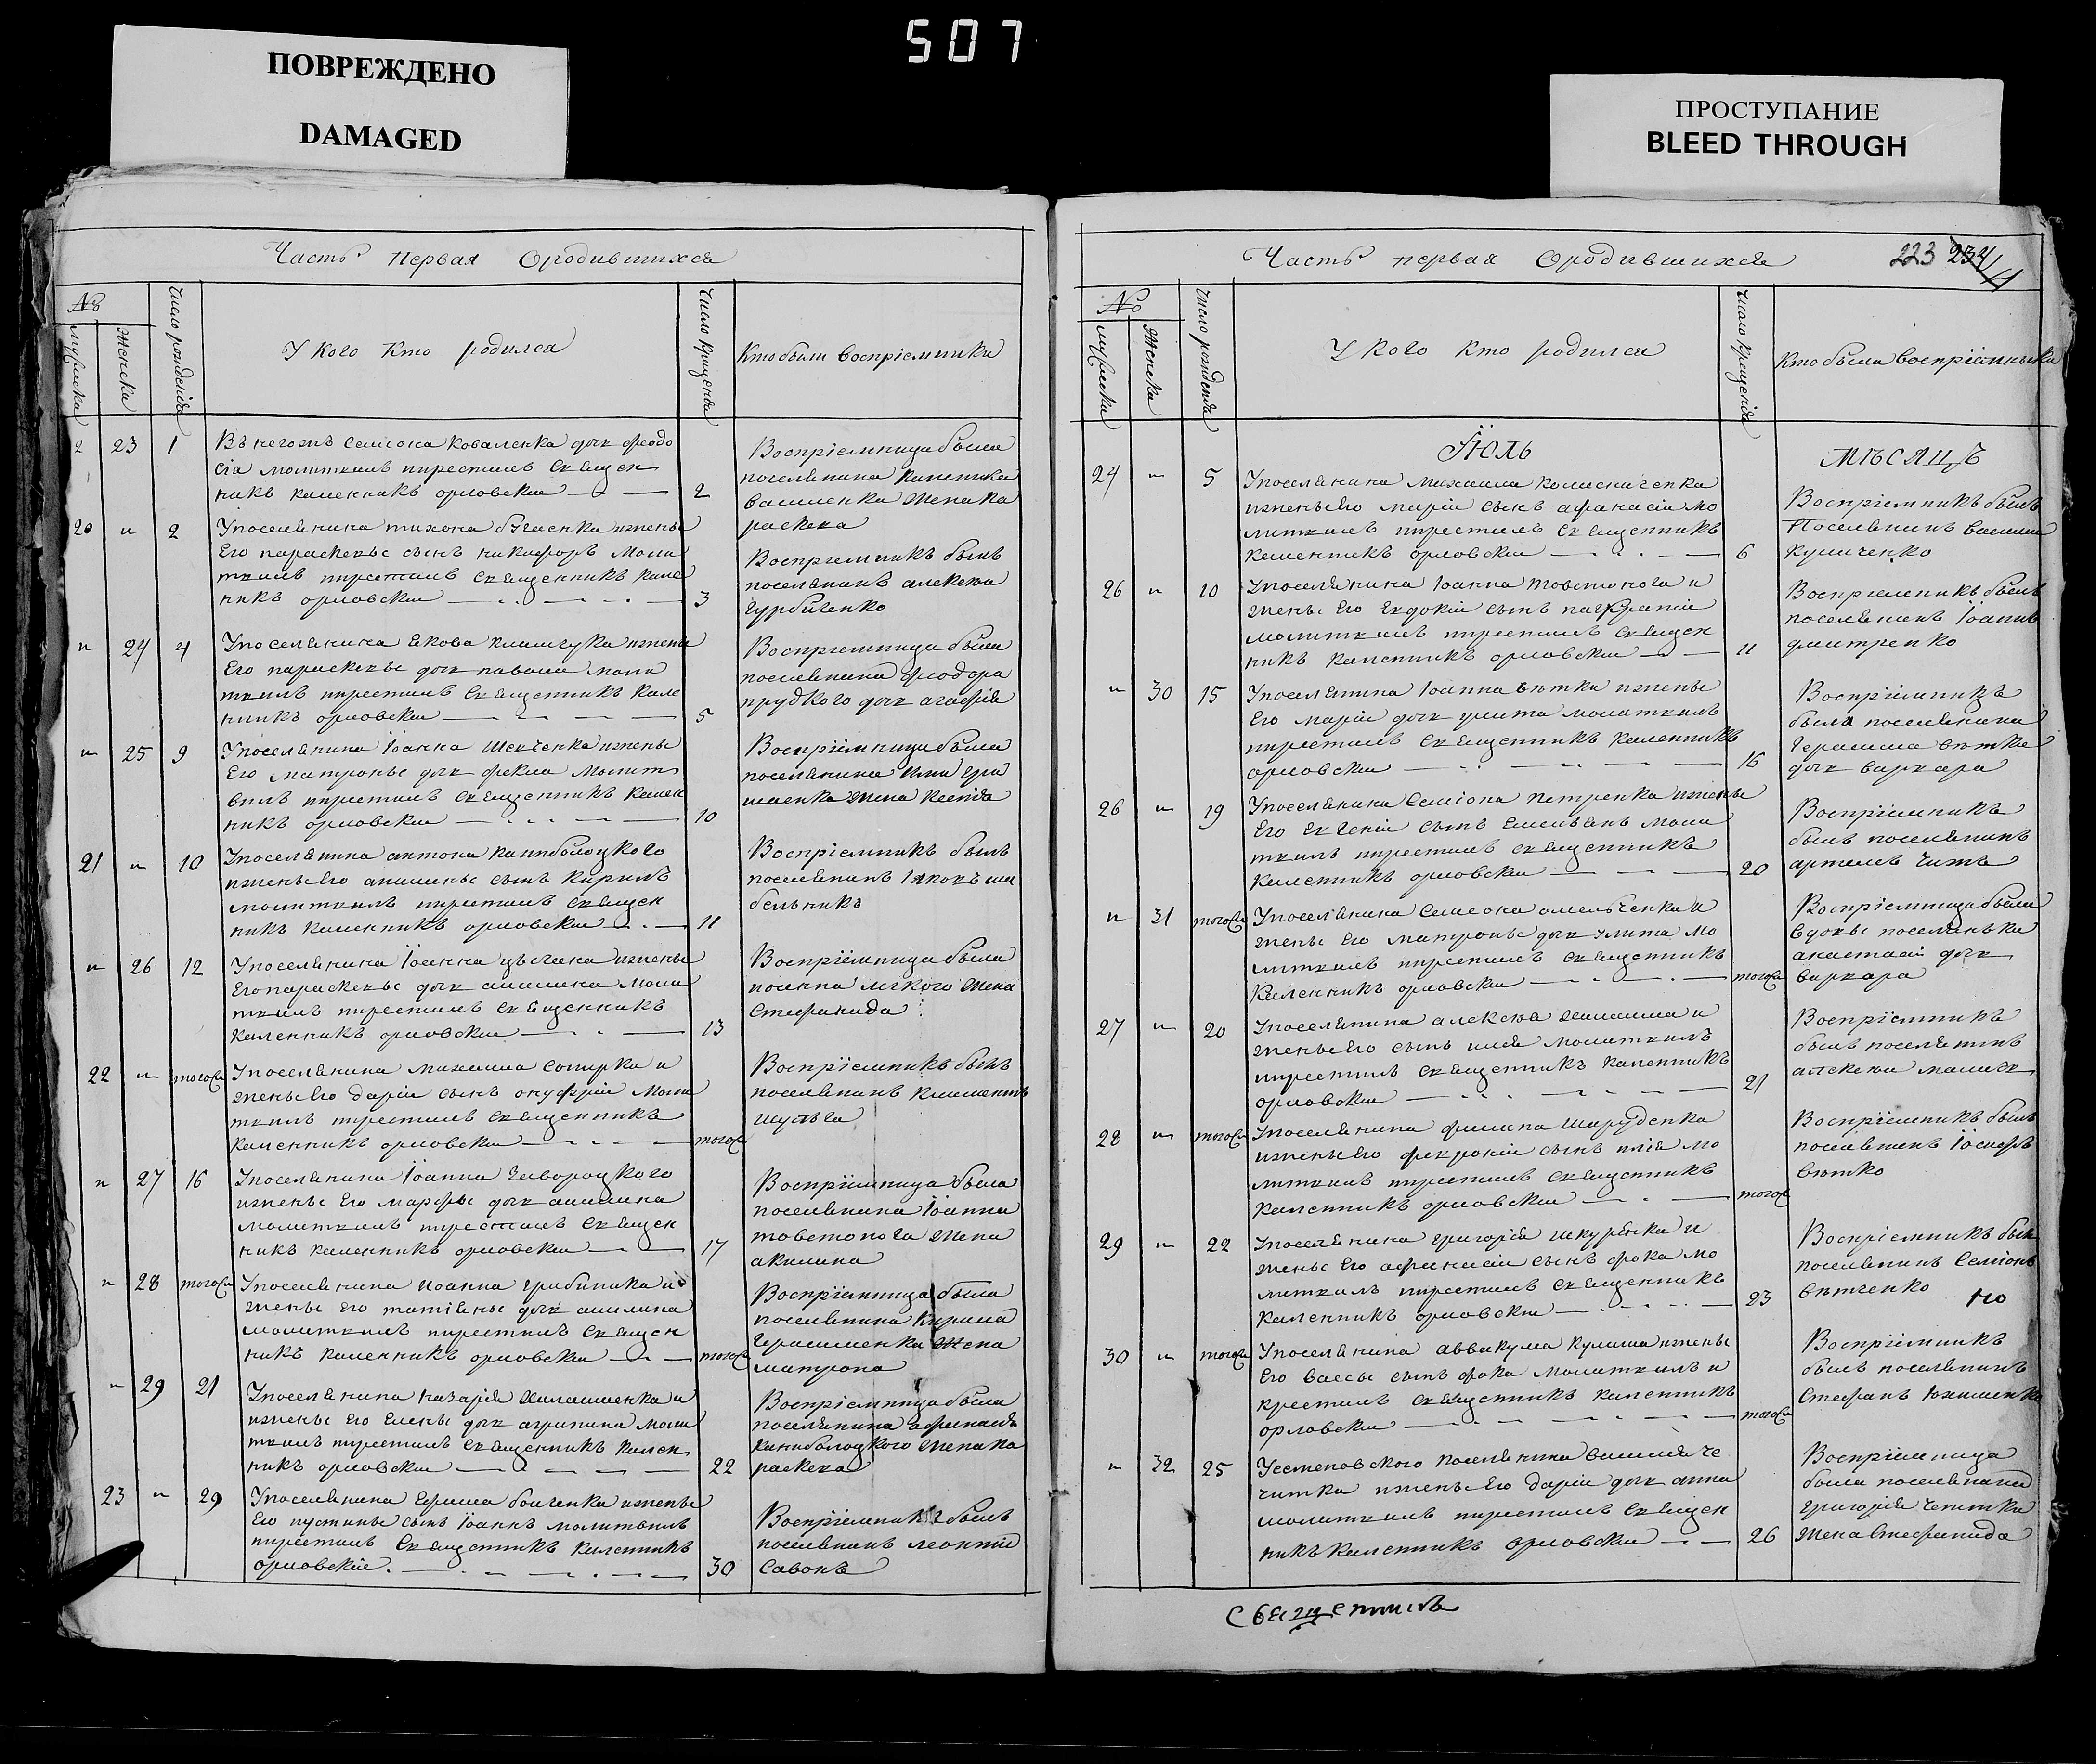 507
ПОВРЕЖДЕНО
DAMAGED
ПРОСТУПАНИЕ
BLEED THROUGH
Часть первая Ородившихся
№
мужеска
женска
число рожденія
У кого кто родился
число крещенія
Кто были воспріемники
23 1
сіа молитвилъ икрестилъ священ
никъ каленникъ орловскии
2
Воспріемница была
поселянина
жена па
раскева
20 и 2
Упоселянина тихона ижены
Его параскевы сынъ никифоръ моли
твилъ икрестилъ священникъ кале
никъ орловскии
3
Воспріемникъ былъ
поселянинъ алексеи
Гурбиченко
и 24 4
Упоселянина якова климчука ижены
Его параскевы доч павола моли
твилъ икрестилъ священникъ кале
никъ орловскии
5
Воспріемница была
поселянина феодора
прудкого доч агафія
и 25 9
Упоселянина Іоанна шевченка ижены
Его матроны доч фекла молит
вилъ икрестилъ священникъ кален
никъ орловскии
10
Воспріемница была
поселянина
жена Ксенія
21 и 10
Упоселянина антона каниболоцкого
ижены его сынъ Кирилъ
молитвилъ икрестилъ священ
никъ каленникъ орловскии
11
Воспріемникъ былъ
поселянинъ Іяковъ ши
бельникъ
и 26 12
Упоселянина Іоанна ижены
Его параскевы доч акилина моли
твилъ икрестилъ священникъ
Каленникъ орловскии
13
Воспріемница была
жена
Стефанида
22 и тогож
Упоселянина михаила сопирка и
жены его даріи сынъ онуфріи моли
твилъ икрестилъ священникъ
Каленникъ орловскии
тогож
Воспріемникъ былъ
поселянинъ климентъ
шульга
и 27 16
Упоселянина Іоанна
ижены Его марфы доч акилина
молитвилъ икрестилъ священ
никъ каленникъ орловскии
17
Воспріемница была
поселянина Іоанна
товстонога жена
акилина
и 28 тогож
Упоселянина иоанна грабиника и
жены его татіяны доч акилина
молитвилъ икрестилъ священ
никъ каленникъ орловскии
тогож
Воспріемница была
поселянина Кирила
Герасименка жена
матрона
и 29 21
Упоселянина назарія и
ижены Его Елены доч агрипина моли
твилъ икрестилъ священникъ кален
никъ орловскии
22
Воспріемница была
поселянина
Каниболоцкого жена па
раскева
23 и 29
Упоселянина ижены
Его устины сынъ Іоаннъ молитвилъ
икрестилъ Священникъ каленникъ
орловскіи
30
Воспріемникъ былъ
поселянинъ леонтіи
Савонъ
Часть первая Ородившихся
223 234
№
мужеска
женска
число рожденія
У кого кто родился
число крещенія
Кто были воспріемники
Іюль
мѣсяцъ
24 и 5
Упоселянина михаила колисниченка
ижены его маріи сынъ афанасіи мо
литвилъ икрестилъ священникъ
Каленникъ орловскии
6
Воспріемникъ былъ
Поселянинъ василии
Куличенко
26 и 10
Упоселянина Іоанна товстонога и
жены Его Евдокіи сынъ
молитвилъ икрестилъ священ
никъ каленникъ орловскии
11
Воспріемникъ былъ
поселянинъ Іоаннъ
дмитренко
и 30 15
Упоселянина Іоанна вѣтки ижены
Его маріи доч улита молитвилъ
икрестилъ священникъ каленникъ
орловскии
16
Воспріемница
была поселянина
Герасима вѣтки
доч варвара
26 и 19
Упоселянина Семіона петренка ижены
Его Евгеніи сынъ Емельянъ моли
твилъ икрестилъ священникъ
Каленникъ орловскии
20
Воспріемникъ
былъ поселянинъ
артемъ
и 31 тогож
Упоселянина Семиона омельченка и
жены Его матроны доч улита мо
литвилъ икрестилъ священникъ
Каленникъ орловскии
тогож
Воспріемница была
вдовы поселянки
анастасіи доч
варвара
27 и 20
Упоселянина алексея и
жены его сынъ илія молитвилъ
икрестилъ священникъ каленникъ
орловскии
21
Воспріемникъ
былъ поселянинъ
алексеи
28 и тогож
Упоселянина филипа шаруденка
ижены его сынъ илія мо
литвилъ икрестилъ священникъ
Каленникъ орловскии
тогож
Воспріемникъ былъ
поселянинъ Іосифъ
вѣтко
29 и 22
Упоселянина григорія и
жены Его афанасіи сынъ фока мо
литвилъ икрестилъ священникъ
Каленникъ орловскии
23
Воспріемникъ былъ
поселянинъ Семіонъ
вѣтченко
30 и тогож
Упоселянина аввакума кулиша ижены
Его вассы сынъ фока молитвилъ и
крестилъ священникъ каленникъ
орловскии
тогож
Воспріемникъ
былъ поселянинъ
Стефанъ Юхименко
и 32 25
Устеповского поселянина василія че
читки ижены Его даріи доч анна
молитвилъ икрестилъ священ
никъ Каленникъ орловскии
26
Воспріемница
была поселянина
григорія чечитки
жена Стефанида
Священникъ